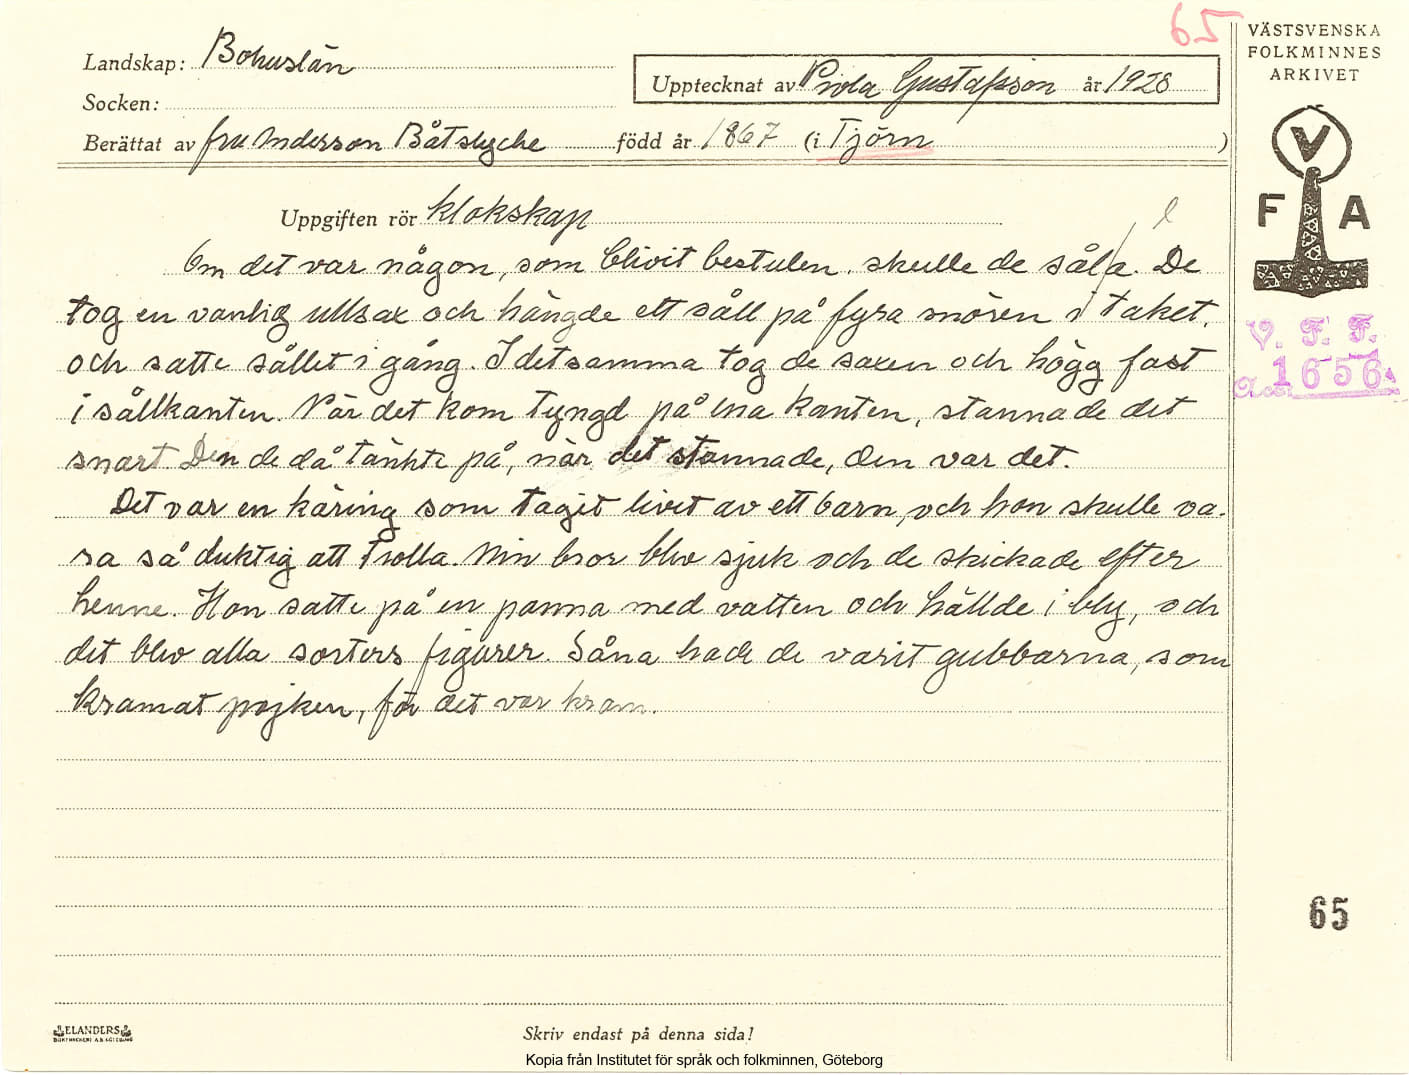 65
VÄSTSVENSKA
FOLKMINNES
ARKIVET
Landskap: Bohuslän
Upptecknat av Viola Gustafsson år 1928
Socken:
Berättat av fru Anderson Båtstycke född år 1867 (i Tjörn )
V
F A
Uppgiften rör klokskap
l
Om det var någon, som blivit bestulen, skulle de såla. De
tog en vanlig ullsax och hängde ett såll på fyra snören i taket,
och satte sållet i gång. I detsamma tog de saxen och högg fast
i sållkanten. När det kom tyngd på ena kanten, stannade det
snart. Den de då tänkte på, när det stannade, den var det.
Det var en käring som tagit livet av ett barn, och hon skulle va-
ra så duktig att trolla. Min bror blev sjuk och de skickade efter
henne. Hon satte på en panna med vatten och hällde i bly, och
det blev alla sorters figurer. Såna hade de varit gubbarna, som
kramat pojken, för det var kram.
V. F. F.
Acc. 1656.
65
ELANDERS
BOKTRYCKERI A.B. GÖTEBORG
Skriv endast på denna sida!
Kopia från Institutet för språk och folkminnen, Göteborg